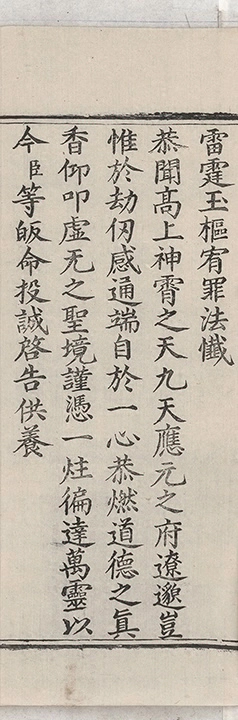 雷霆玉樞宥罪法懺
恭聞髙上神霄之天九天應元之府遼邈豈
惟於劫仞感通端自於一心恭燃道德之真
香仰叩虛无之聖境謹憑一炷徧達萬靈以
今臣等皈命投誠啓告供養